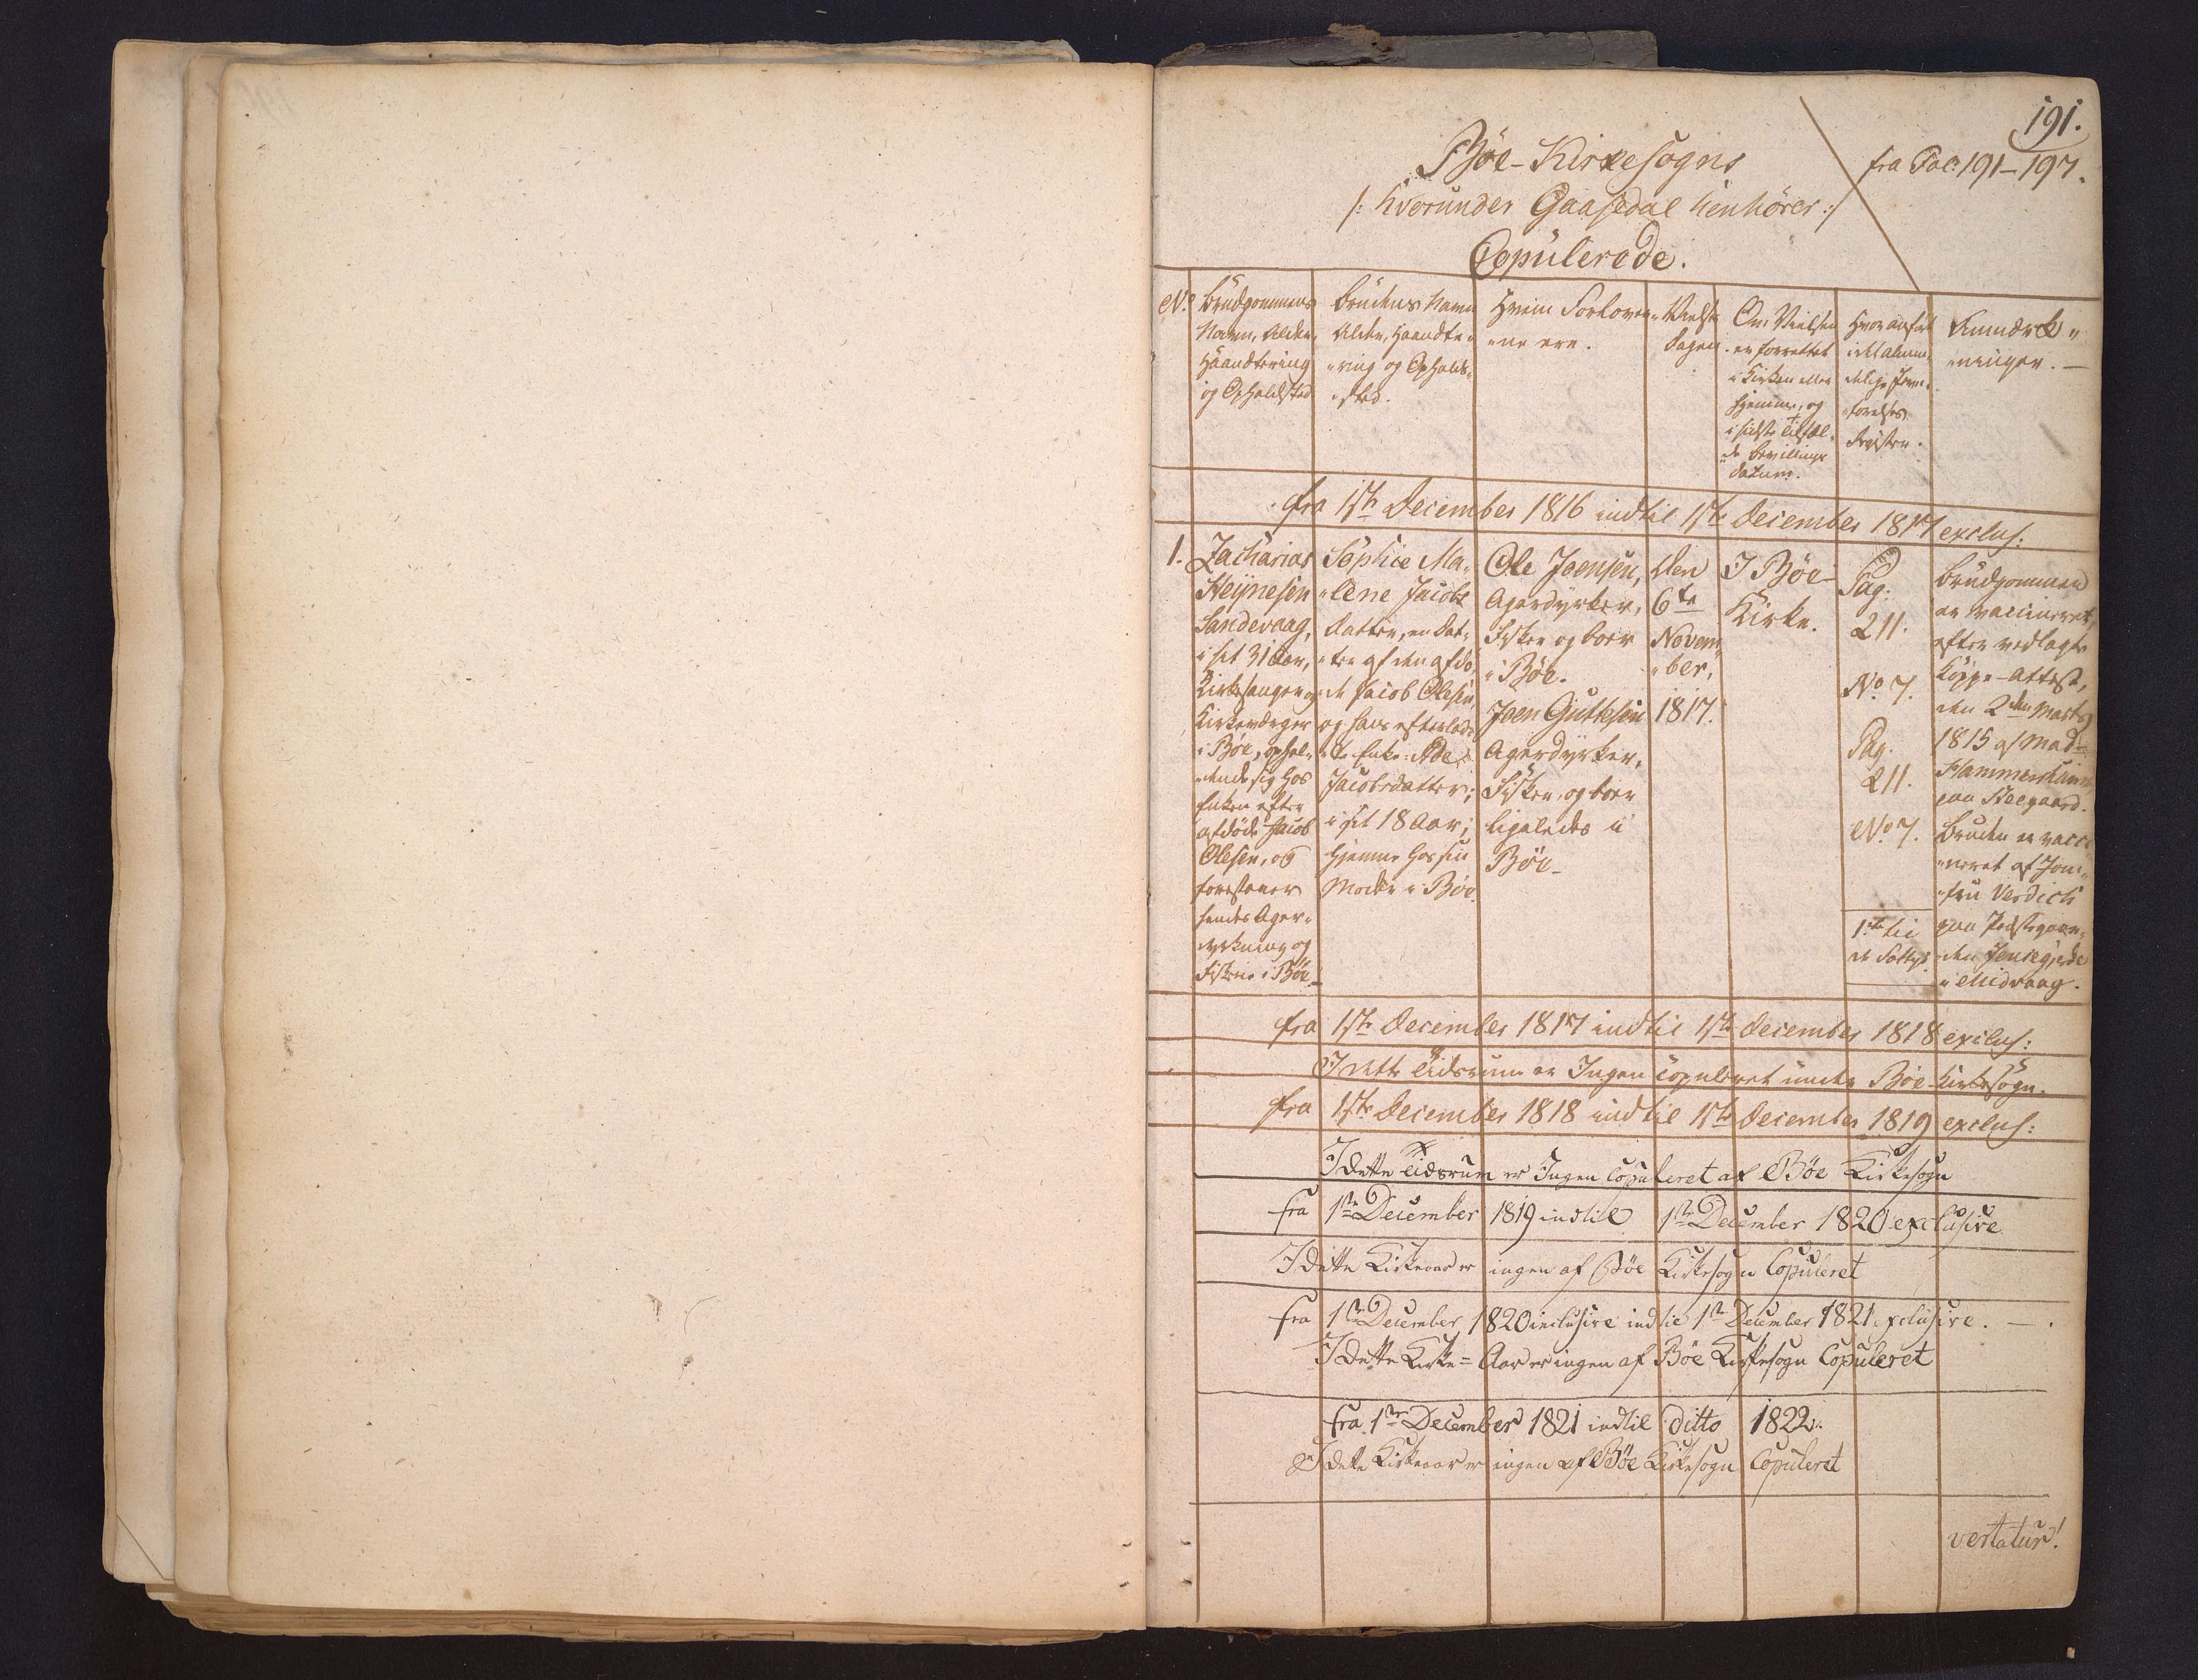 191.
Bøe-Kirkesogns
fra Fol: 191-197.
/: hvorunder Gaasedal henhører :/
Copulerede.
No.
Brudgommens
Navn, Alder,
Haandtering
og Opholdsted
Brudens Navn
Alder, Haandte„
„ring og Opholds„
„sted.
Hvem Forlover„
„ne ere.
Vielses
Dagen.
Om Vielsen
er forrettet
i Kirken eller
hjemme, og
i sidste Tilfæl„
„de Bevillings
Datum.
Hvor anført
i det almin„
delige Jevn„
„førelses
Register.
Anmærk„
„ninger. —
fra 1ste December 1816 indtil 1ste December 1817 exclus:
1.
Zacharias
Heÿnesen
Sandevaag,
i sit 31 Aar,
Kirkesanger og
Kirkeværger
i Bøe, ophol„
„dende sig hos
Enken efter
afdøde Jacob
Olesen, og
forestaaer
hendes Ager„
dyrkning og
Fiskerie i Bøe.
Sophie Ma„
„lene Jacobs
datter, en Dat„
„ter af den afdø„
„de Jacob Olesen,
og hans efterlad„
„te Enke: Ade
Jacobsdatter;
i sit 18 Aar;
hjemme hos sin
Moder i Bøe.
Ole Joensen,
Agerdyrker,
Fisker og boer
i Bøe.
Joen Guttesen
Agerdyrker,
Fisker, og boer
ligeledes i
Bøe.
Den
6te
Novem„
„ber,
1817.
I Bøe-
Kirke.
Pag:
211.
No. 7.
Pag.
211.
No 7.
Brudgommen
er vaccineret,
efter vedlagte
Koppe-Attest,
den 2den Marts
1815 af Mad-
Hammershaimb,
paa Steegaard.
Bruden er vacci„
„neret af Jom„
„fru Verdich
paa Præstegaar„
„den Jensegjerde
i Midvaag.
fra 1ste December 1817 indtil 1ste December 1818 exclus:
I dette Tidsrum er Ingen copuleret under Bøe-Kirkesogn.
fra 1ste December 1818 indtil 1ste December 1819 exclus:
I dette Tidsrum er Ingen Copuleret af Bøe Kirkesogn
fra 1ste December 1819 indtil 1ste December 1820 exclusive
I dette Kirkeaar er ingen af Bøe Kirkesogn Copuleret
fra 1ste December 1820 inclusive indtil 1ste December 1821 exclusive. — .
I dette Kirke=Aar er ingen af Bøe Kirkesogn Copuleret
fra 1ste December 1821 indtil ditto 1822.
I dette Kirkeaar er ingen af Bøe Kirkesogn Copuleret
vertatur!